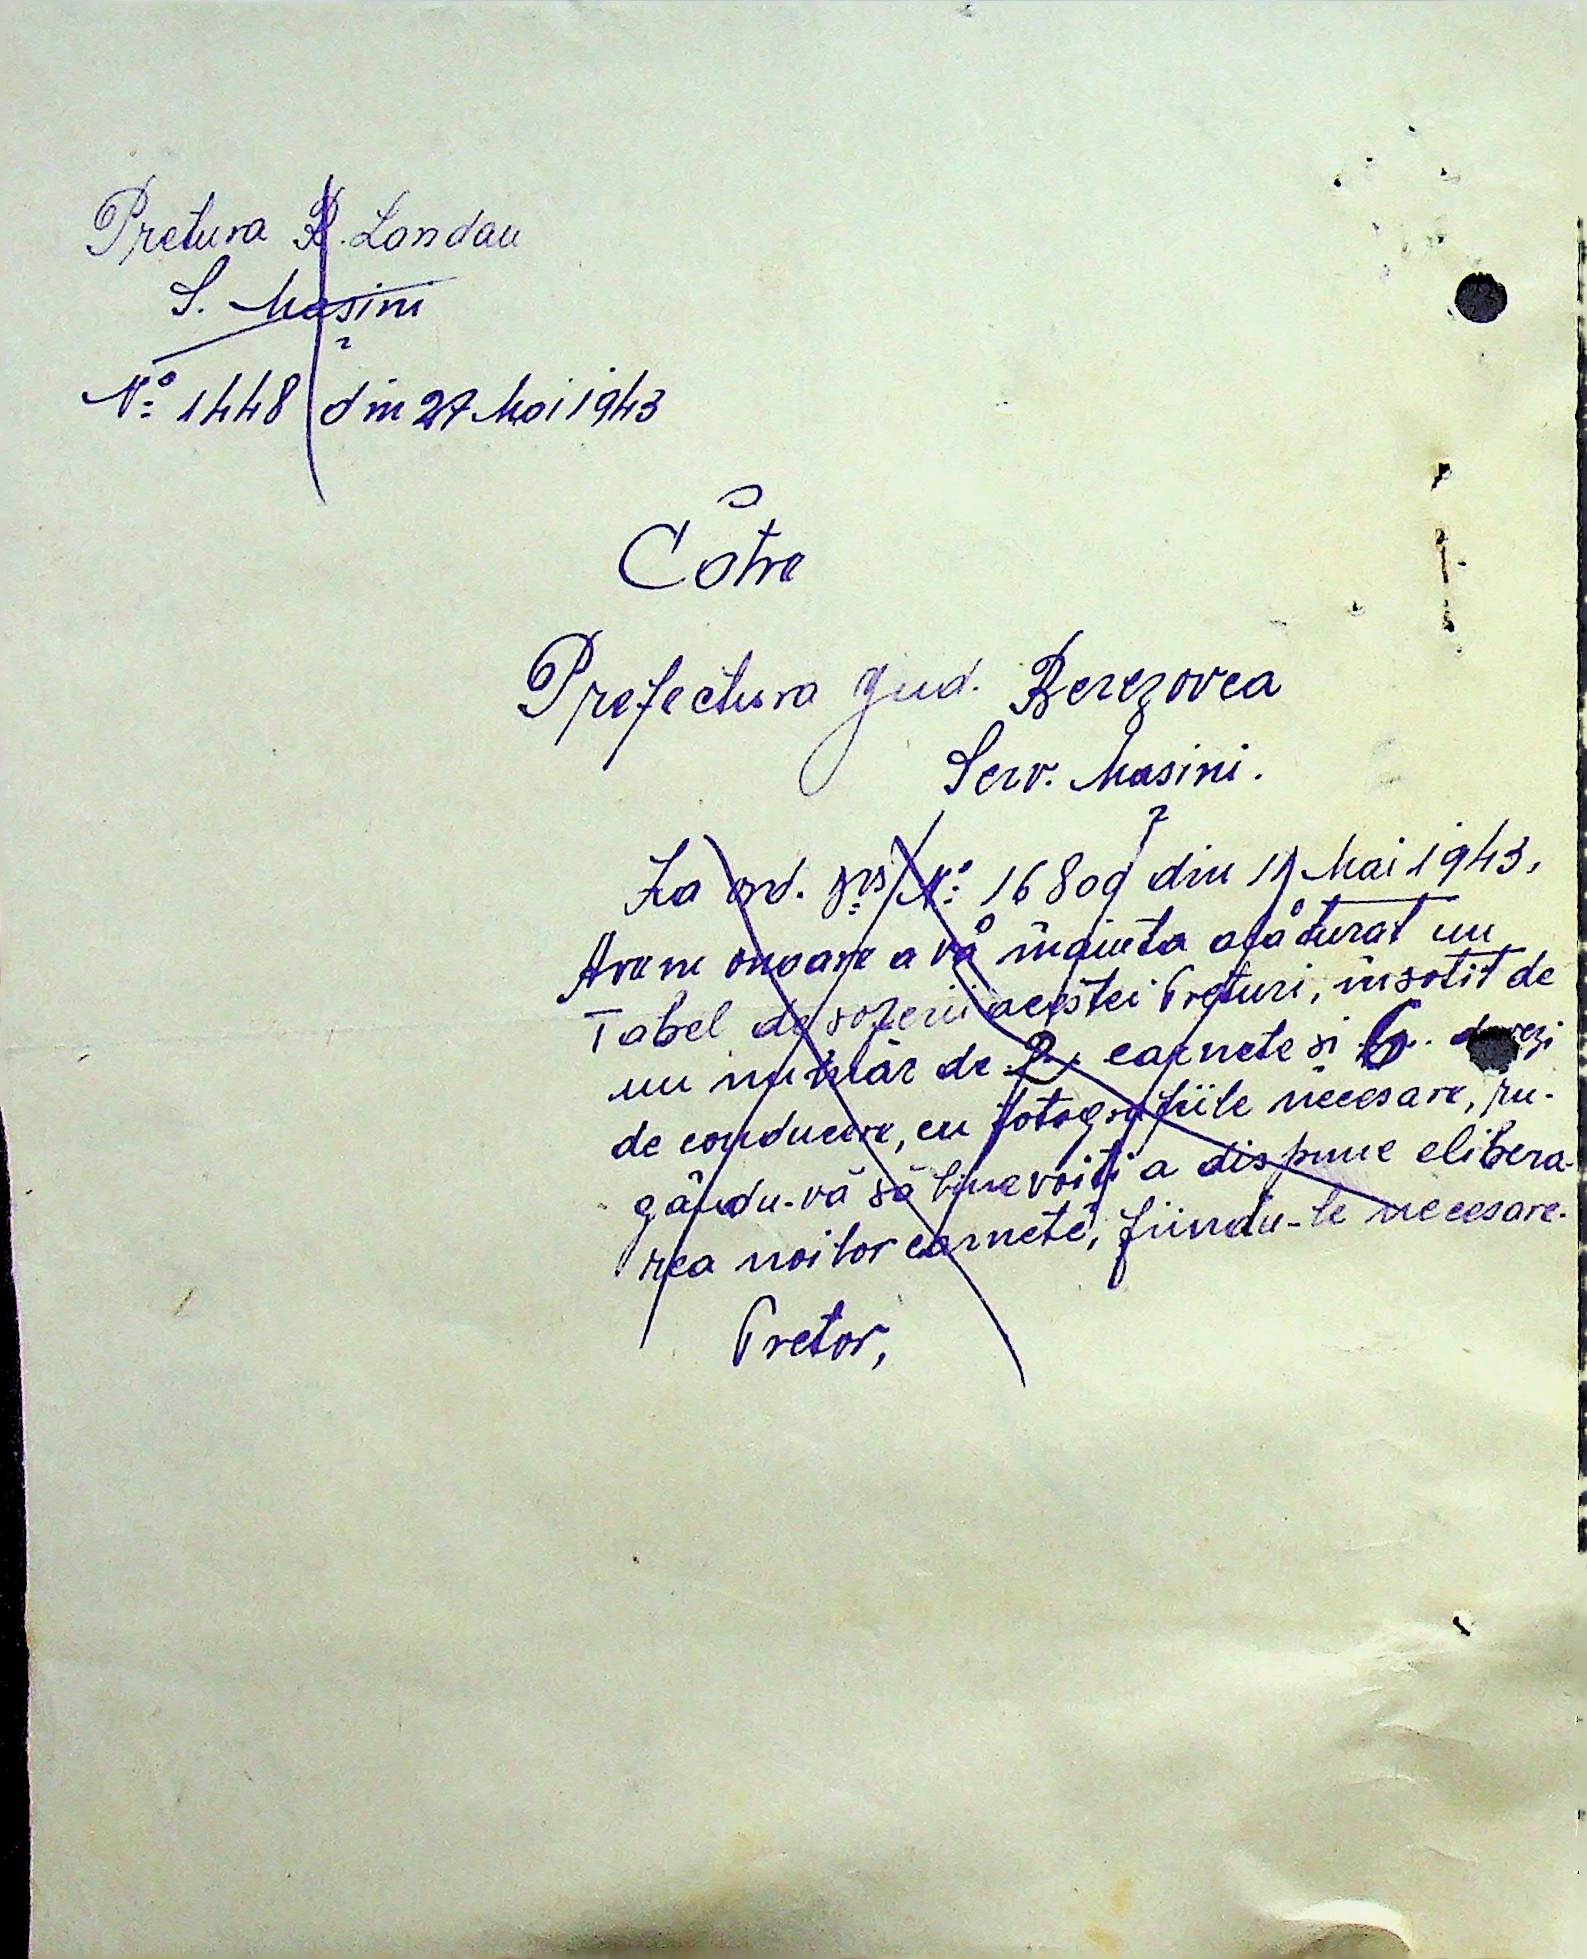 Pretura R. Landau
S. Mașini
Nº 1448 din 27 Mai 1943
Către
Prefectura Jud. Berezovca
Serv. Mașini.
La ord. Nº 16809 din 11 Mai 1943,
Avem onoare a vă înainta alăturat un
Tabel de șoferii acestei Preturi, însoțit de
un număr de 2 carnete si 6
de conducere, cu fotografiile necesare, ru-
gându-vă să binevoiți a dispune elibera-
rea noilor carnete, fiindu-le necesare.
Pretor,